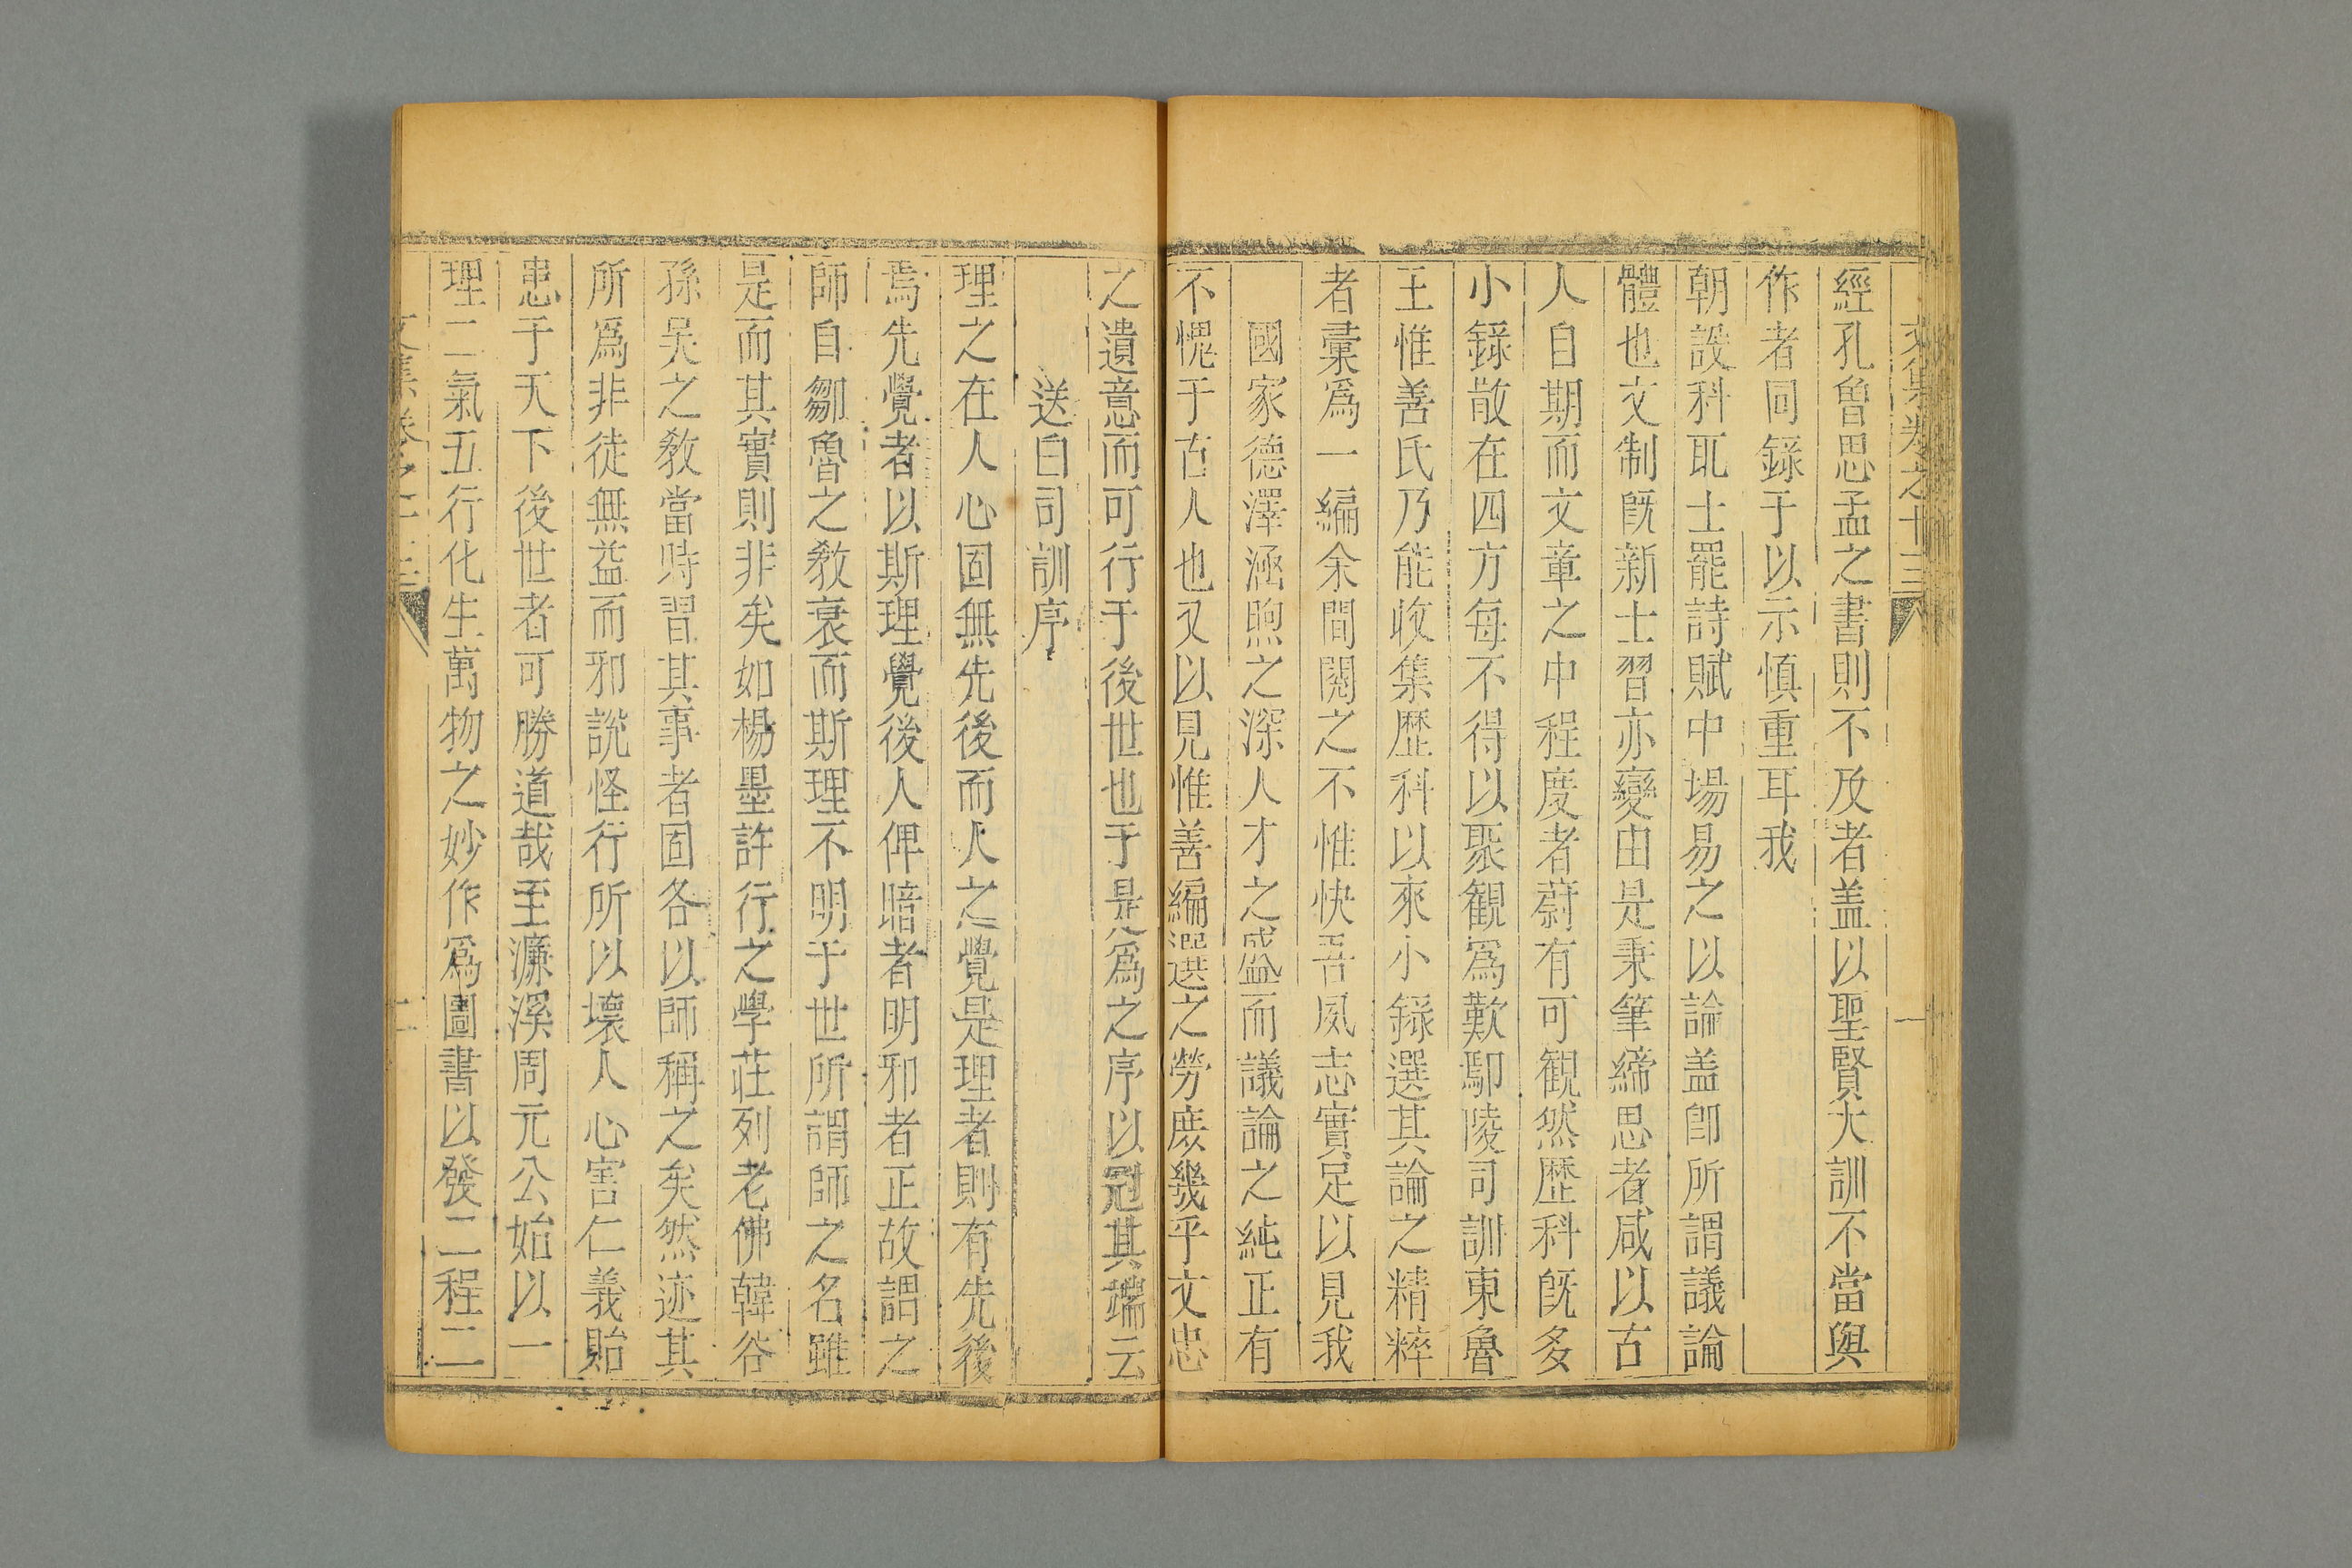 文集卷之十三
一
經孔曾思孟之書則不及者盖以聖賢大訓不當與
作者同錄于以示慎重耳我
朝設科取士罷詩賦中場易之以論盖卽所謂議論
體也文制旣新士習亦變由是秉筆締思者咸以古
人自期而文章之中程度者蔚有可觀然歷科旣多
小錄散在四方每不得以聚觀爲歎鄢陵司訓東魯
王惟善氏乃能收集歷科以來小錄選其論之精粹
者彙爲一編余間閱之不惟快吾夙志實足以見我
國家德澤涵煦之深人才之盛益而議論之純正有
不愧于古人也又以見惟善編選之勞庶幾乎文忠
之遺意而可行于後世也于是爲之序以冠其端云
送白司訓序
理之在人心固無先後而人之覺是理者則有先後
焉先覺者以斯理覺後人俾暗者明邪者正故謂之
師自鄒魯之敎衰而斯理不明于世所謂師之名雖
是而其實則非矣如楊墨許行之學莊列老佛韓谷
孫吳之敎當時習其事者固各以師稱之矣然迹其
所爲非徒無益而邪說怪行所以壞人心害仁義貽
患于天下後世者可勝道哉至濂溪周元公始以一
理二氣五行化生萬物之妙作爲圖書以發二程二
文集卷之十三
二